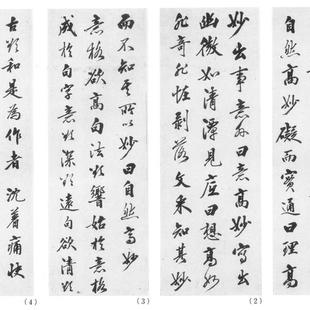 自然高妙礙而實通曰理高
妙出事意外曰意高妙寫出
幽微如清潭見底曰想高妙
非奇非怪剝落文采知其妙
(2)
而不知其所以妙曰自然高妙
意格欲高句法欲響始於意格
成於句字意欲深欲遠句欲清欲
(3)
古欲和是為作者 沈着痛快
(4)